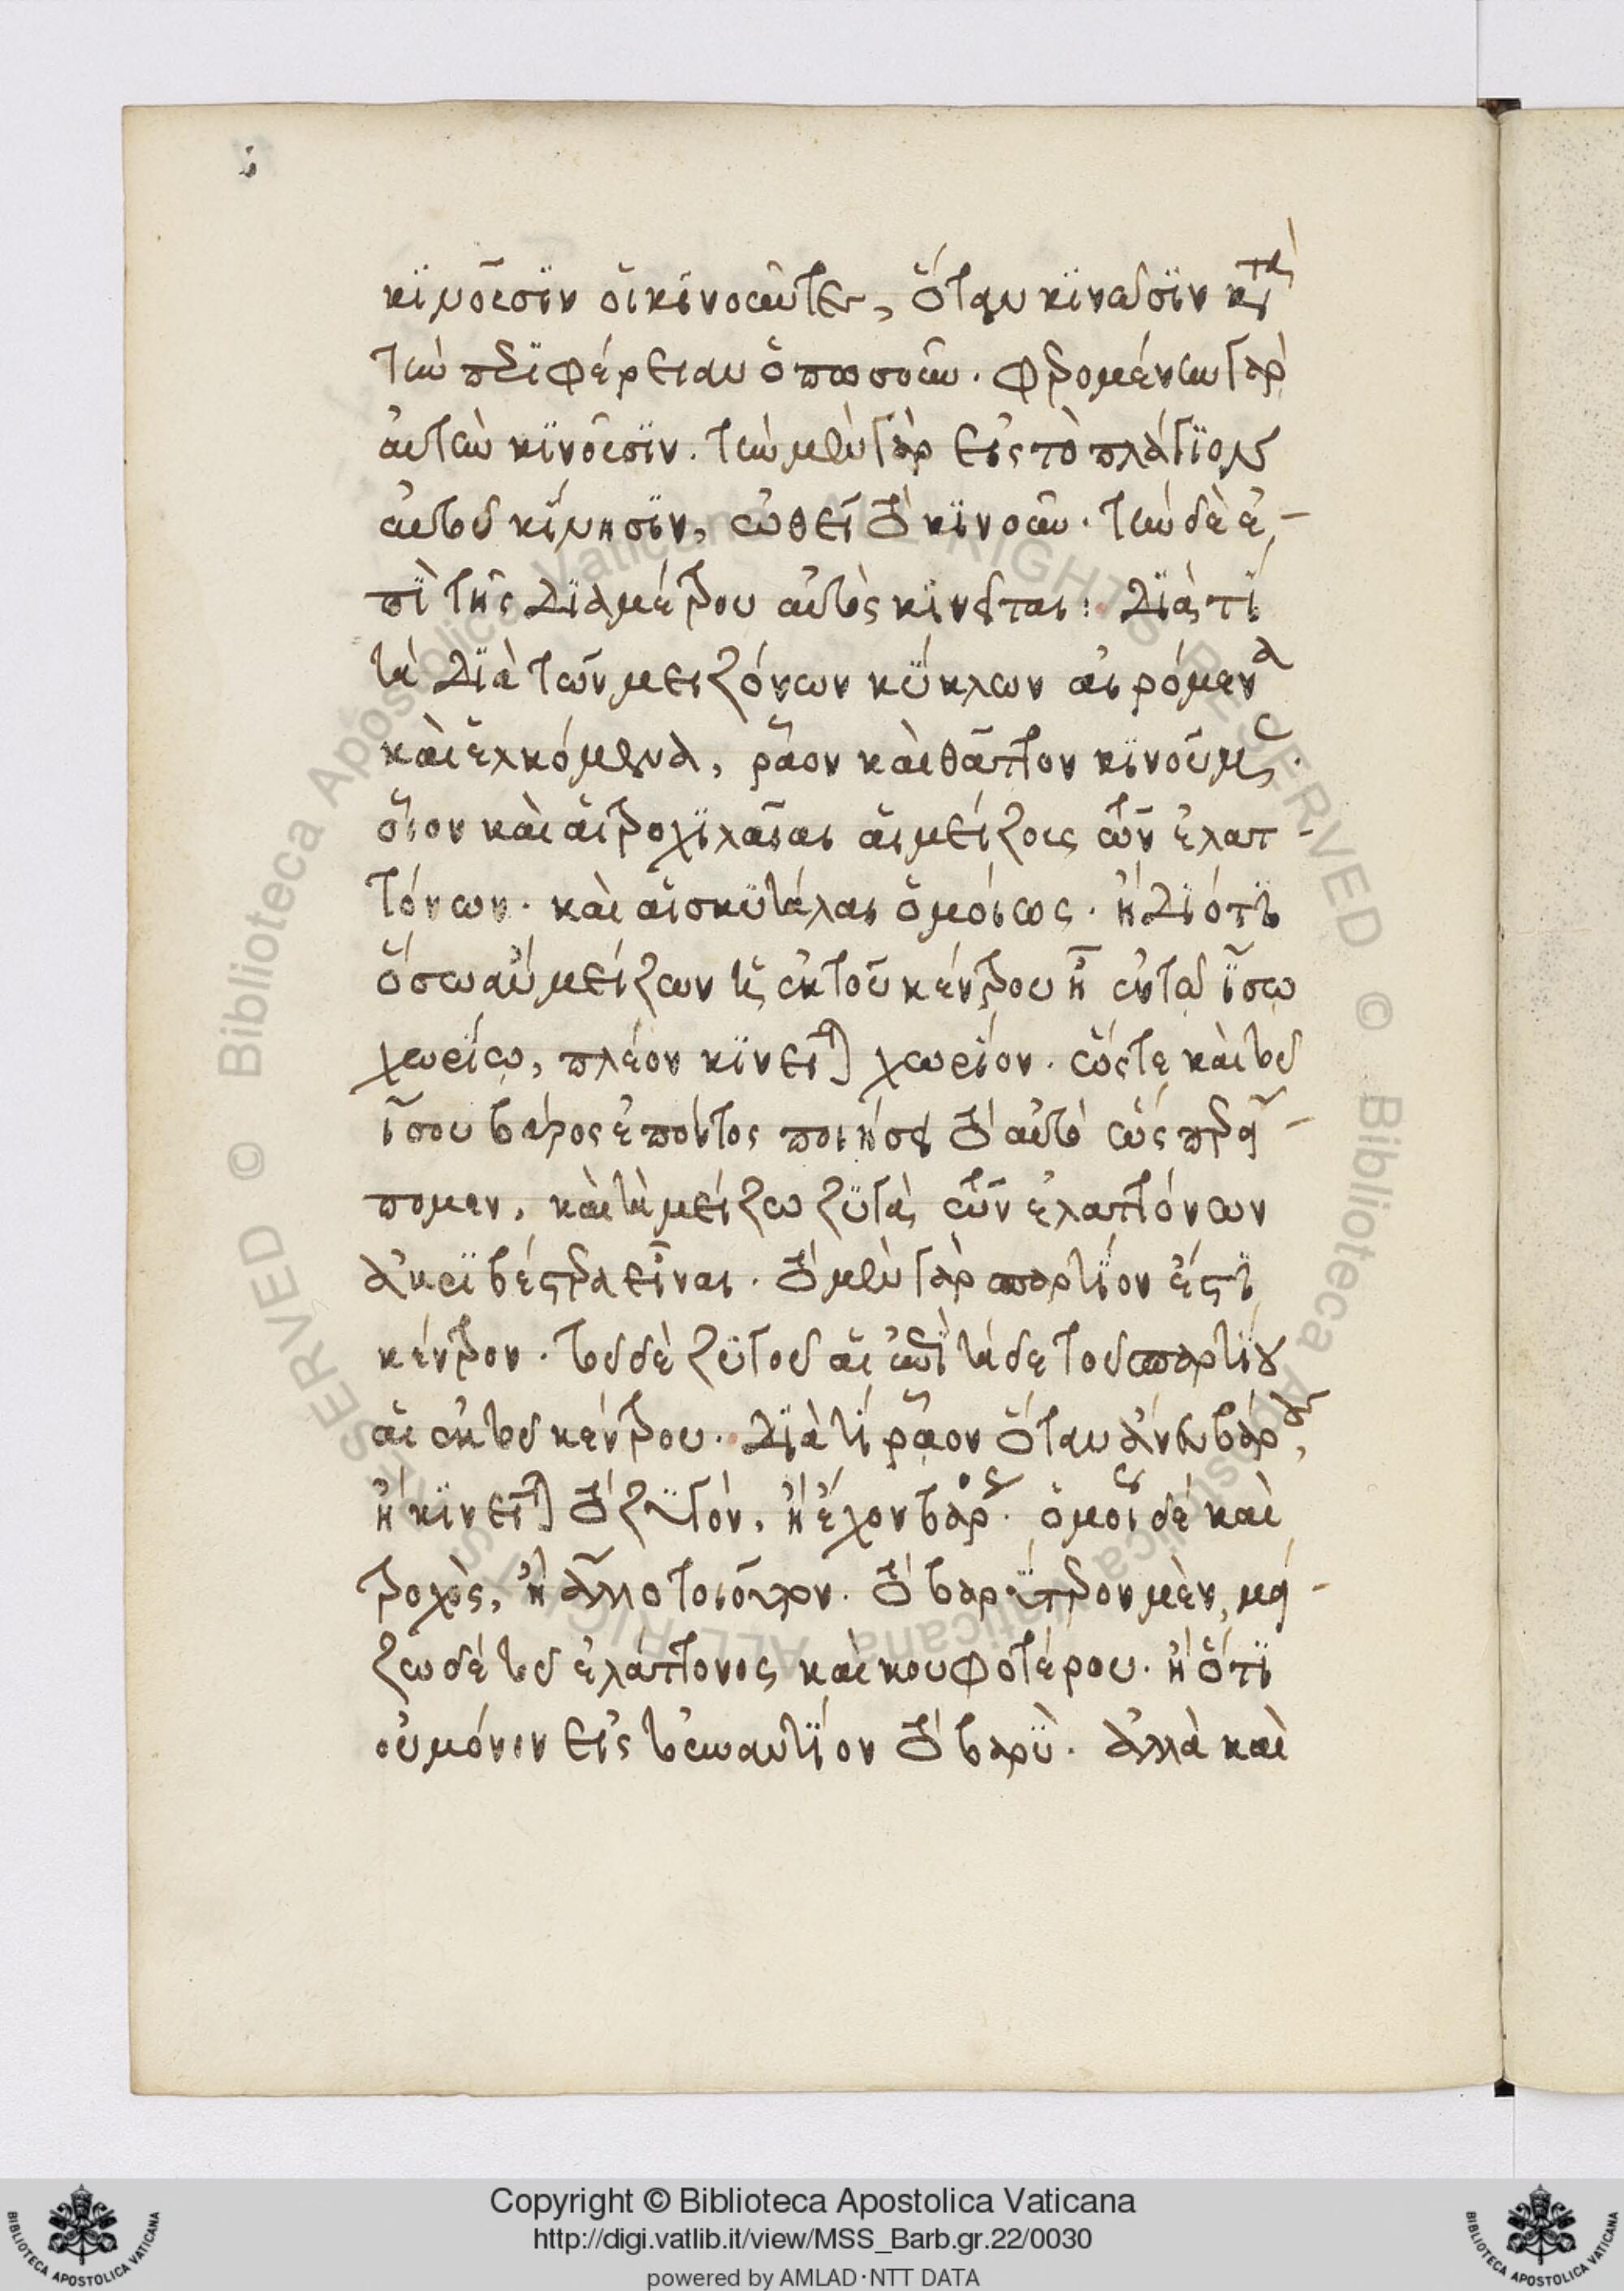 κινοῦσιν οἱ κινοῦντες, ὅταν κινῶσιν κατὰ
τὴν περιφέρειαν ὁπωσοῦν. φερομένην γὰρ
αὐτὴν κινοῦσιν. τὴν μὲν γὰρ εἰς τὸ πλάγιον
αὐτοῦ κίνησιν, ὠθεῖ τὸ κινοῦν. τὴν δὲ ἐ-
πὶ τῆς διαμέτρου αὐτὸς κινεῖται: διὰ τί
τὰ διὰ τῶν μειζόνων κύκλων αἰρόμενα
καὶ ἑλκόμενα, ῥᾶον καὶ θᾶττον κινοῦμεν.
οἷον καὶ αἱ τροχιλαῖαι αἱ μείζους τῶν ἐλατ-
τόνων. καὶ αἱ σκυτάλαι ὁμοίως. ἢ διότι
ὅσω ἂν μείζων ἡ ἐκ τοῦ κέντρου ἦ ἐν τῷ ἴσῳ
χωρίῳ, πλέον κινεῖται χωρίον. ὥστε καὶ τοῦ
ἴσου βάρος ἐπόντος ποιήσει τὸ αὐτὸ ὥσπερ εἴ-
πομεν, καὶ τὰ μείζω ζυγὰ τῶν ἐλαττόνων
ἀκριβέστερα εἶναι. τὸ μὲν γὰρ σπαρτίον ἐστὶ
κέντρον. τοῦ δὲ ζυγοῦ αἱ ἐπὶ τάδε τοῦ σπαρτίου
αἱ ἐκ τοῦ κέντρου. διὰ τί ῥᾶον ὅταν ἄνευ βάρους,
ἢ κινεῖται τὸ ζυγόν, ἢ ἔχον βάρος. ὁμοίως δὲ καὶ
τροχὸς, ἢ ἄλλο τοιοῦτον. τὸ βαρύτερον μὲν, μεῖ-
ζω δὲ τοῦ ἐλάττονος καὶ κουφοτέρου. ἢ ὅτι
οὐ μόνον εἰς τὸ ἐναντίον τὸ βαρὺ. ἀλλὰ καὶ
Copyright © Biblioteca Apostolica Vaticana
http://digi.vatlib.it/view/MSS_Barb.gr.22/0030
powered by AMLAD·NTT DATA